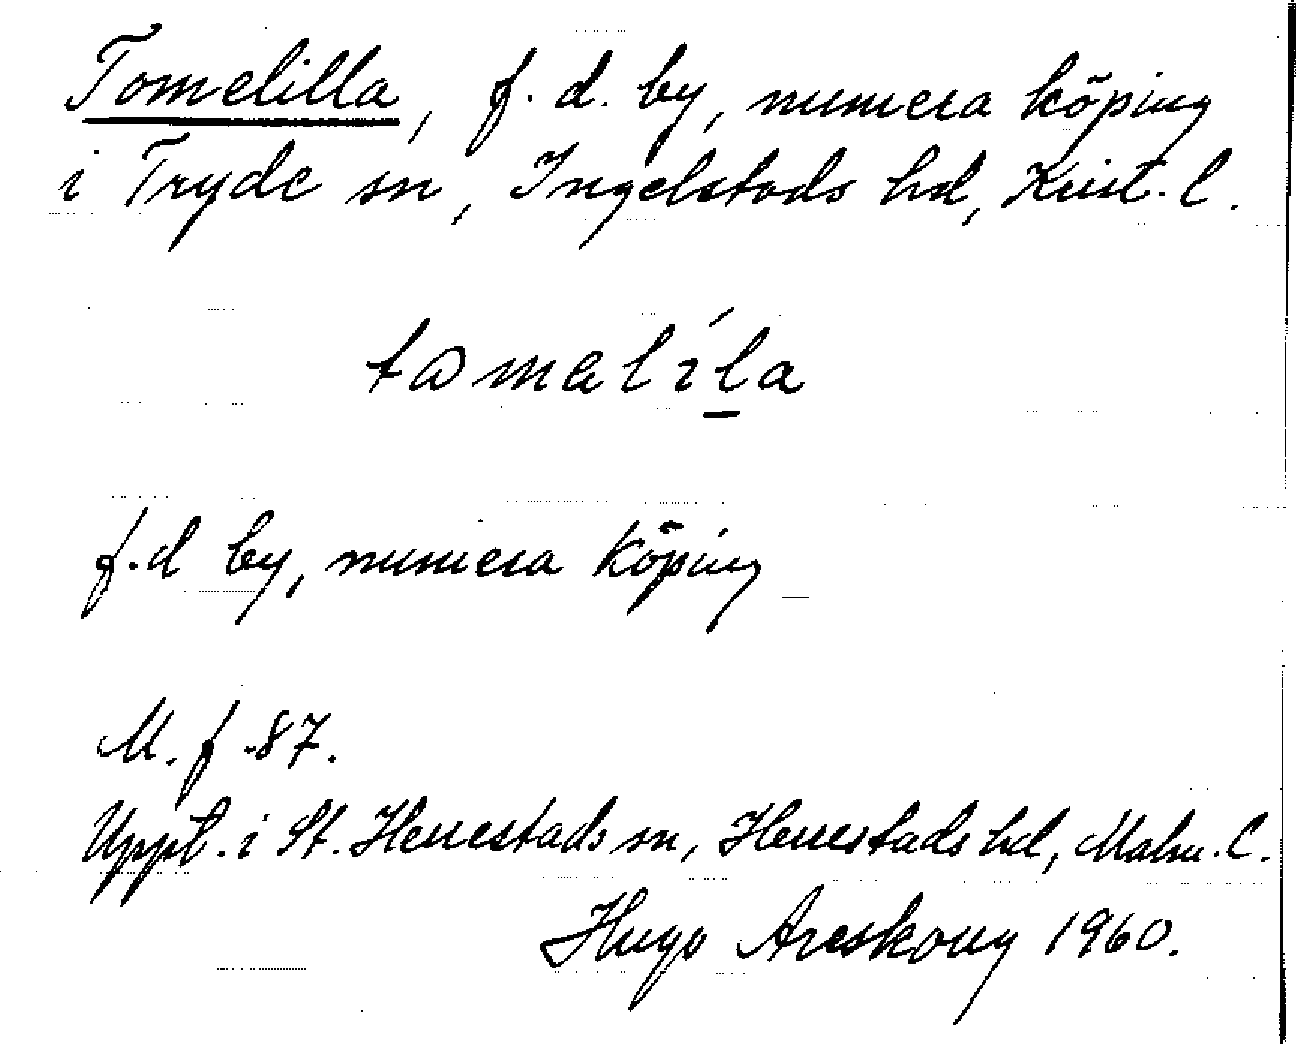 Tomelilla, f. d. by, numera köping
i Tryde sn, Ingelstads hd, Krist. l.
tɷmalíl̲a
f.d by, numera köping
M. f -87.
Uppt. i St. Herrestads sn, Herrestads hd, Malm. l.
Hugo Areskoug 1960.